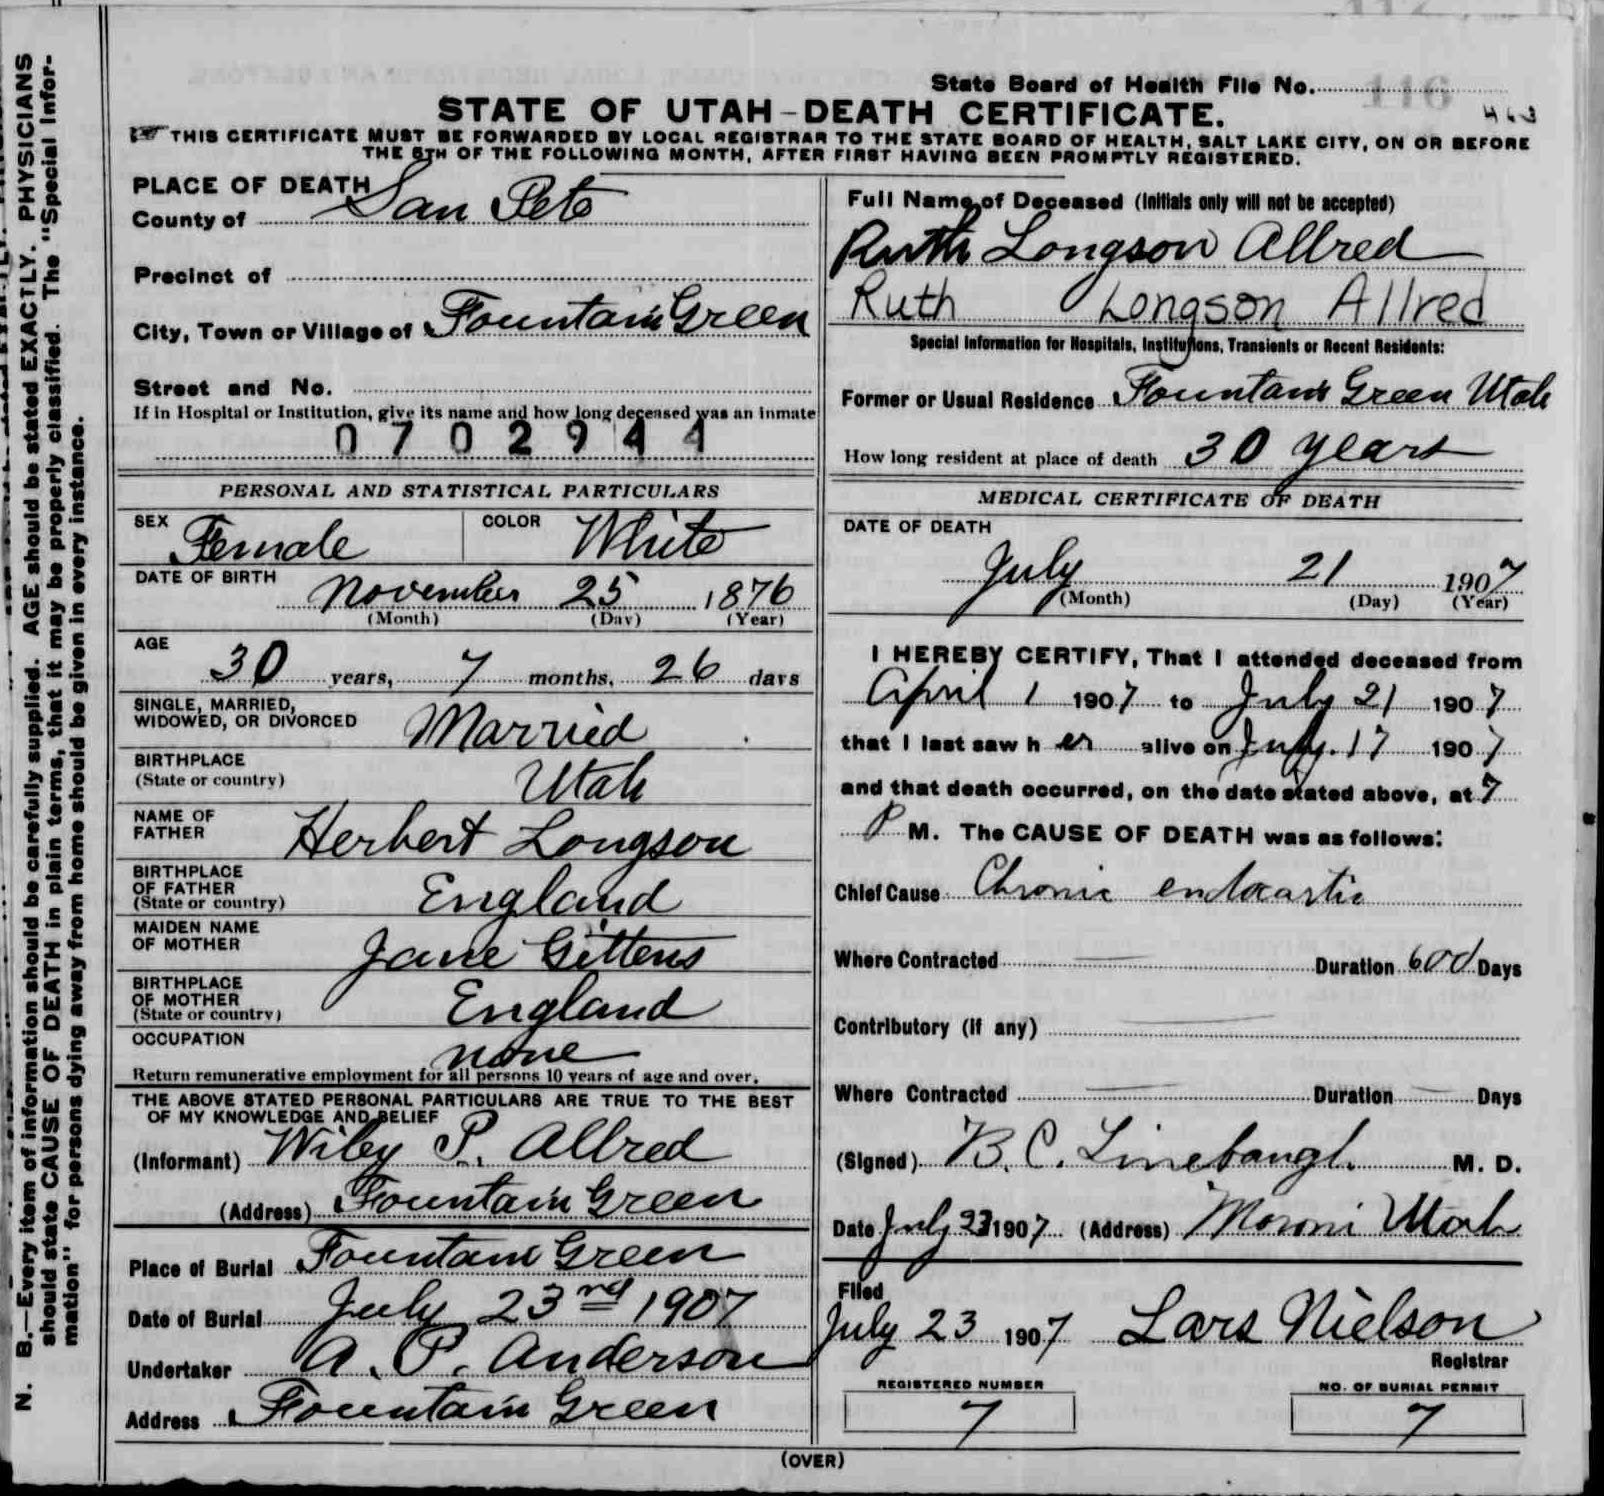 State Board of Health File No. 116
463
STATE OF UTAH-DEATH CERTIFICATE.
THIS CERTIFICATE MUST BE FORWARDED BY LOCAL REGISTRAR TO THE STATE BOARD OF HEALTH, SALT LAKE CITY, ON OR BEFORE
THE 5TH OF THE FOLLOWING MONTH, AFTER FIRST HAVING BEEN PROMPTLY REGISTERED.
PLACE OF DEATH
County of San Pete
Precinct of
City, Town or Village of Fountain Green
Street and No.
If in Hospital or Institution, give its name and how long deceased was an inmate
0702944
PERSONAL AND STATISTICAL PARTICULARS
SEX Female COLOR White
DATE OF BIRTH
November 25 1876
(Month) (Day) (Year)
AGE
30 years, 7 months, 26 days
SINGLE, MARRIED,
WIDOWED, OR DIVORCED Married
BIRTHPLACE
(State or country) Utah
NAME OF
FATHER Herbert Longson
BIRTHPLACE
OF FATHER
(State or country) England
MAIDEN NAME
OF MOTHER Jane Gittens
BIRTHPLACE
OF MOTHER
(State or country) England
OCCUPATION
none
Return remunerative employment for all persons 10 years of age and over.
THE ABOVE STATED PERSONAL PARTICULARS ARE TRUE TO THE BEST
OF MY KNOWLEDGE AND BELIEF
(Informant) Wiley P. Allred
(Address) Fountain Green
Place of Burial Fountain Green
Date of Burial July 23rd 1907
Undertaker A. P. Anderson
Address Fountain Green
Full Name of Deceased (Initials only will not be accepted)
Ruth Longson Allred
Ruth Longson Allred
Special Information for Hospitals, Institutions, Transients or Recent Residents:
Former or Usual Residence Fountain Green Utah
How long resident at place of death 30 years
MEDICAL CERTIFICATE OF DEATH
DATE OF DEATH
July 21 1907
(Month) (Day) (Year)
I HEREBY CERTIFY, That I attended deceased from
April 1 1907 to July 21 1907
that I last saw her alive on July. 17 1907
and that death occurred, on the date stated above, at 7
P M. The CAUSE OF DEATH was as follows:
Chief Cause Chronic endocartic
Where Contracted — Duration 600 Days
Contributory (if any) —
Where Contracted — Duration — Days
(Signed) B. C. Linebaugh. M. D.
Date July 23 1907 (Address) Moroni Utah
Filed
July 23 1907 Lars Nielson
Registrar
REGISTERED NUMBER
7
NO. OF BURIAL PERMIT
7
(OVER)
N. B.—Every item of information should be carefully supplied. AGE should be stated EXACTLY. PHYSICIANS
should state CAUSE OF DEATH in plain terms, that it may be properly classified. The "Special Infor-
mation" for persons dying away from home should be given in every instance.